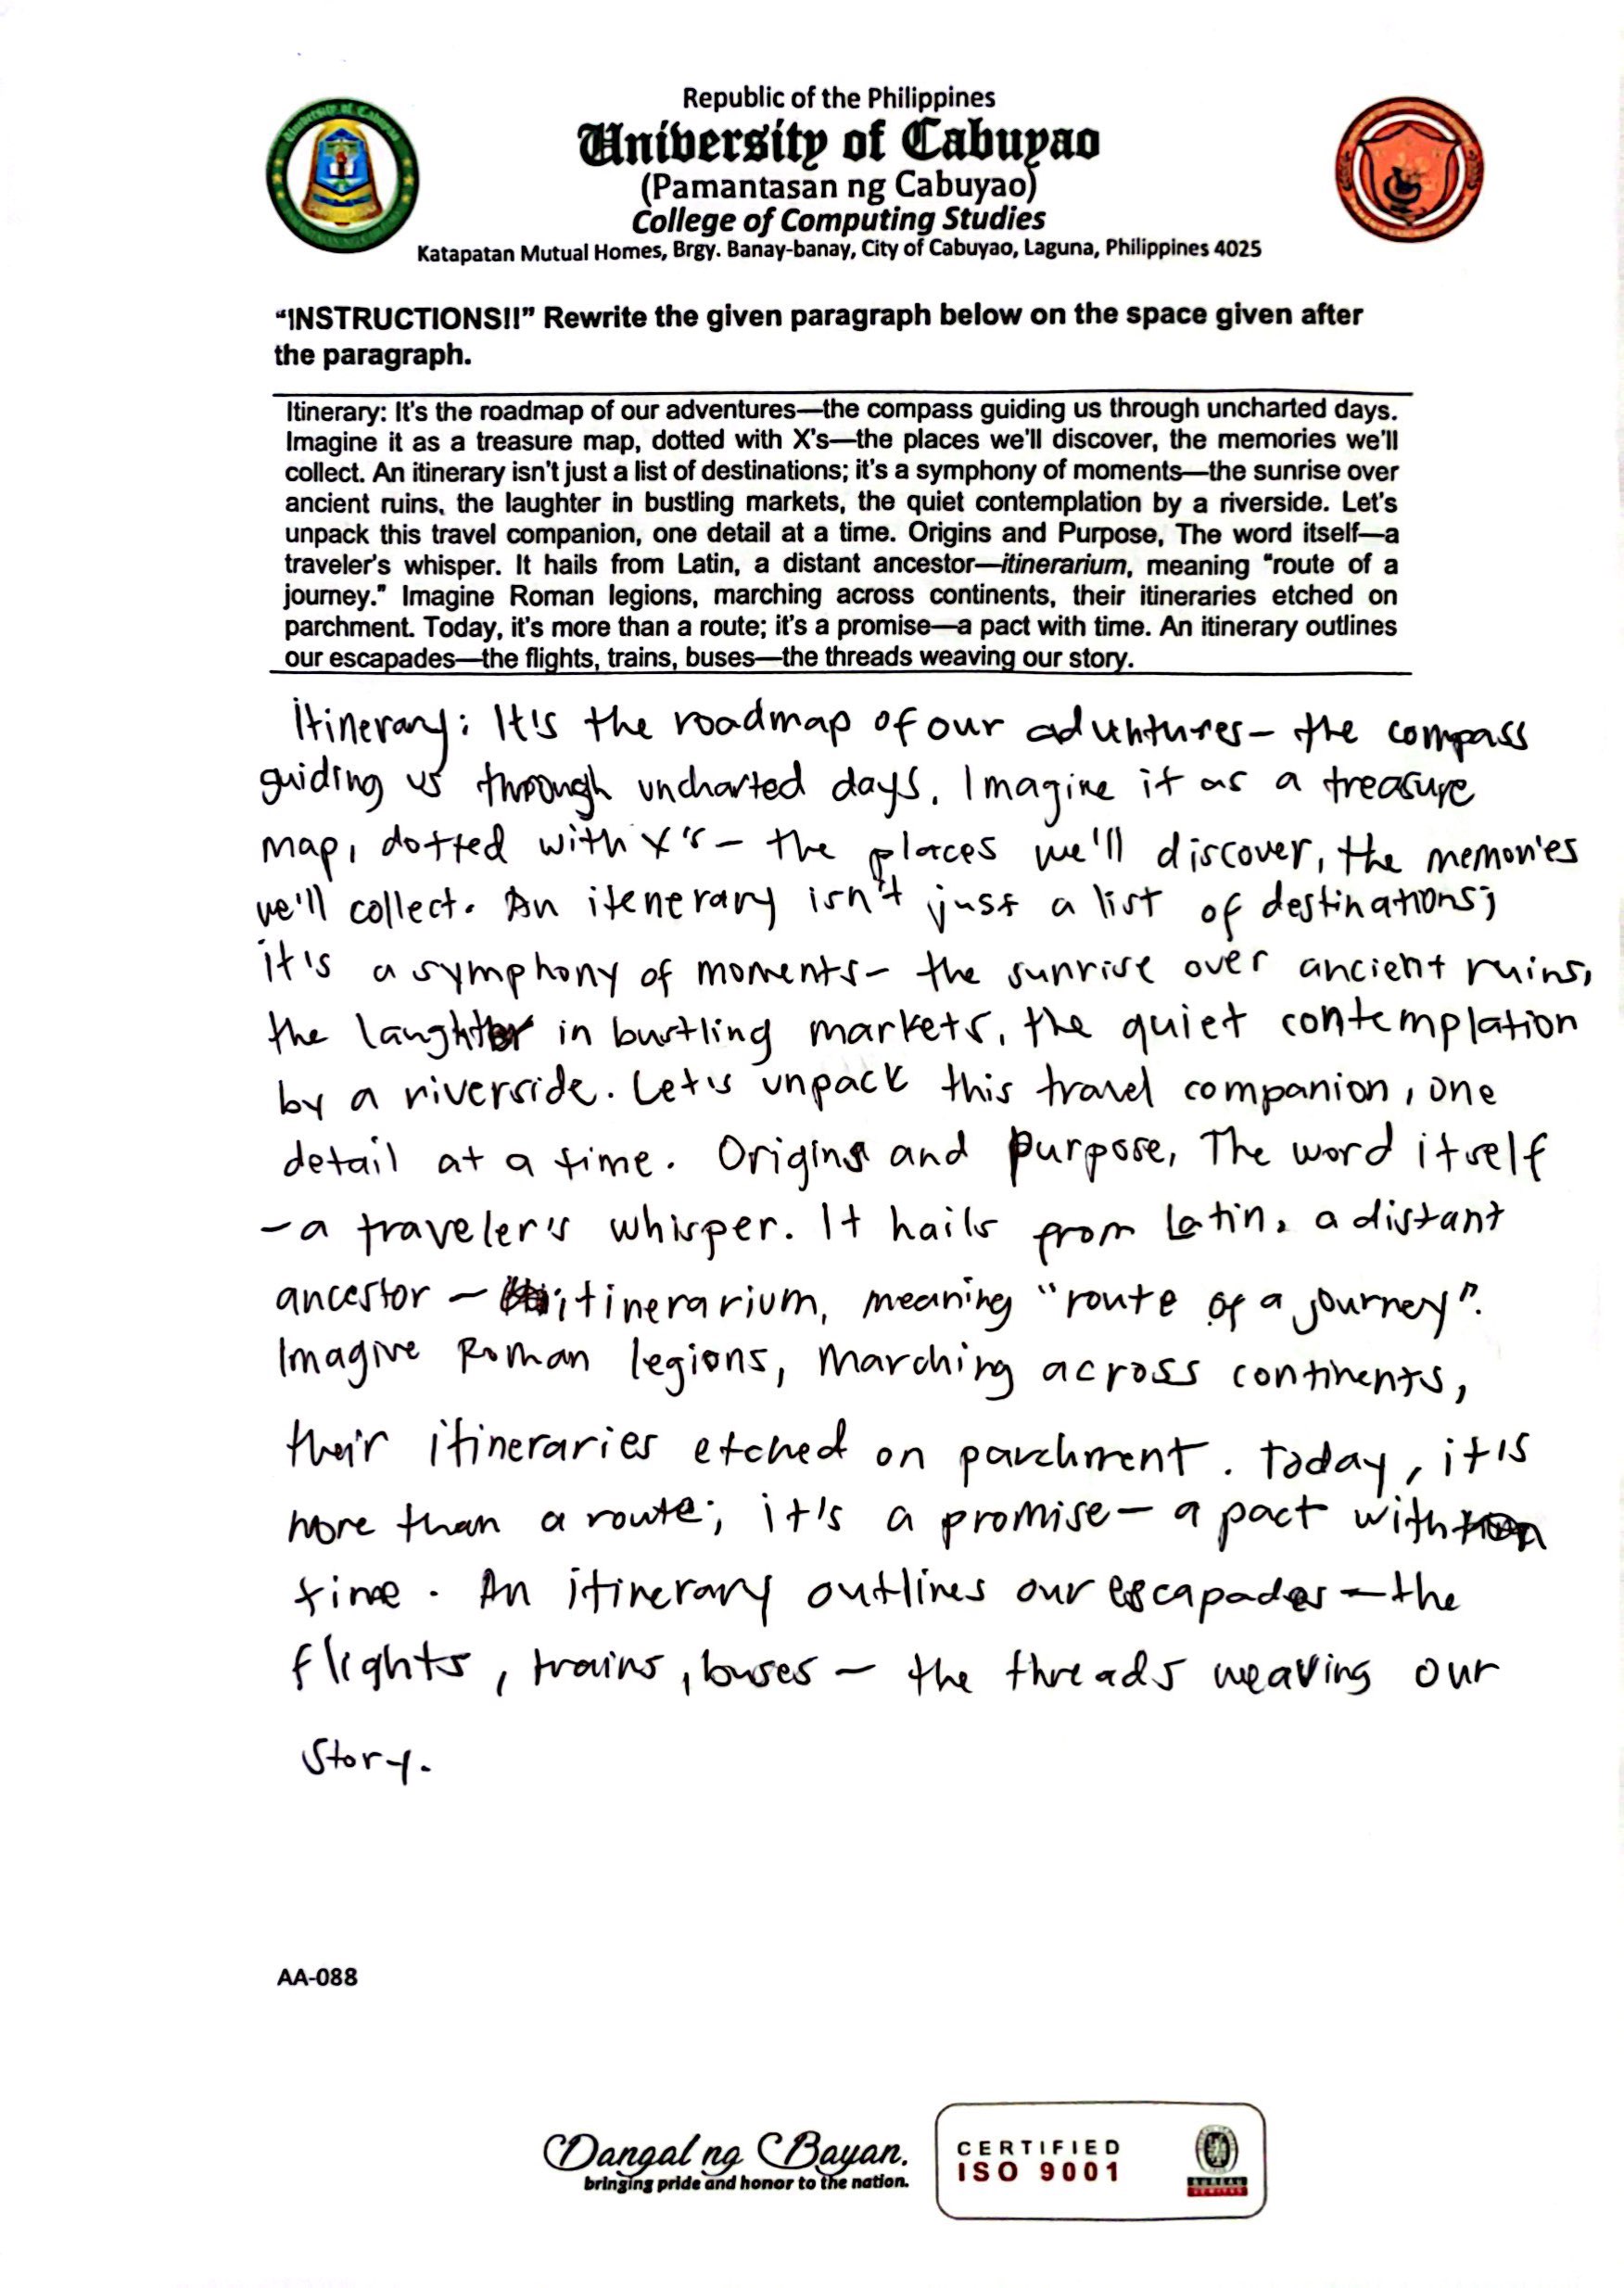 Republic of the Philippines
University of Cabuyao
(Pamantasan ng Cabuyao)
College of Computing Studies
Katapatan Mutual Homes, Brgy. Banay-banay, City of Cabuyao, Laguna, Philippines 4025
“INSTRUCTIONS!!” Rewrite the given paragraph below on the space given after
the paragraph.
Itinerary: It's the roadmap of our adventures—the compass guiding us through uncharted days.
Imagine it as a treasure map, dotted with X's—the places we'll discover, the memories we'll
collect. An itinerary isn't just a list of destinations; it's a symphony of moments—the sunrise over
ancient ruins, the laughter in bustling markets, the quiet contemplation by a riverside. Let's
unpack this travel companion, one detail at a time. Origins and Purpose, The word itself—a
traveler's whisper. It hails from Latin, a distant ancestor—itinerarium, meaning “route of a
journey.” Imagine Roman legions, marching across continents, their itineraries etched on
parchment. Today, it's more than a route; it's a promise—a pact with time. An itinerary outlines
our escapades—the flights, trains, buses—the threads weaving our story.
Itinerary: It's the roadmap of our adventures- the compass
guiding us through uncharted days. Imagine it as a treasure
map, dotted with X's - the places we'll discover, the memories
we'll collect. An itenerary isn't just a list of destinations;
it's a symphony of moments- the sunrise over ancient ruins,
the laughter in bustling markets, the quiet contemplation
by a riverside. Let's unpack this travel companion, one
detail at a time. Origins and purpose, The word itself
- a traveler's whisper. It hails from Latin, a distant
ancestor - itinerarium, meaning "route of a journey".
Imagine Roman legions, marching across continents,
their itineraries etched on parchment. Today, it's
more than a route; it's a promise - a pact with
time. An itinerary outlines our escapades - the
flights, trains, buses - the threads weaving our
story.
AA-088
Dangal ng Bayan.
bringing pride and honor to the nation.
CERTIFIED
ISO 9001
BUREAU
VERITAS